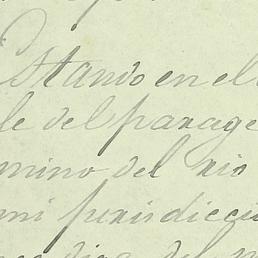 Estando en el
le del parage
mino del rio
mi jurisdiccio